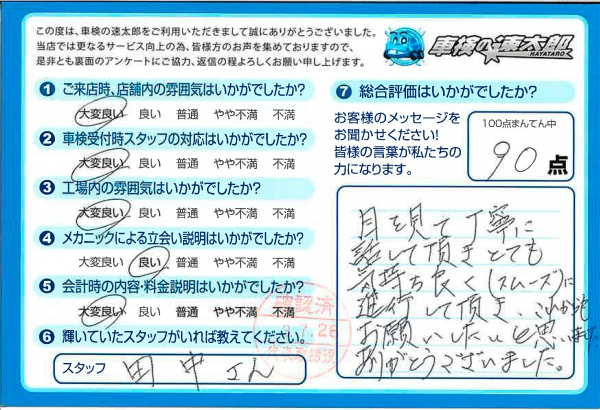 この度は、車検の速太郎をご利用いただきまして誠にありがとうございました。
当店では更なるサービス向上の為、皆様方のお声を集めておりますので、
是非とも裏面のアンケートにご協力、返信の程よろしくお願い申し上げます。
車検の速太郎
HAYATARO
1 ご来店時、店舗内の雰囲気はいかがでしたか?
大変良い 良い 普通 やや不満 不満
2 車検受付時スタッフの対応はいかがでしたか?
大変良い 良い 普通 やや不満 不満
3 工場内の雰囲気はいかがでしたか?
大変良い 良い 普通 やや不満 不満
4 メカニックによる立会い説明はいかがでしたか?
大変良い 良い 普通 やや不満 不満
5 会計時の内容・料金説明はいかがでしたか?
大変良い 良い 普通 やや不満 不満
6 輝いていたスタッフがいれば教えてください。
スタッフ 田中さん
確認済
7.26
7 総合評価はいかがでしたか?
お客様のメッセージを
お聞かせください!
皆様の言葉が私たちの
力になります。
100点まんてん中
90点
目を見て丁寧に
話して頂きとても
気持ち良く(スムーズ)に
進行して頂き、これからも
お願いしたいと思いました
ありがとうございました。